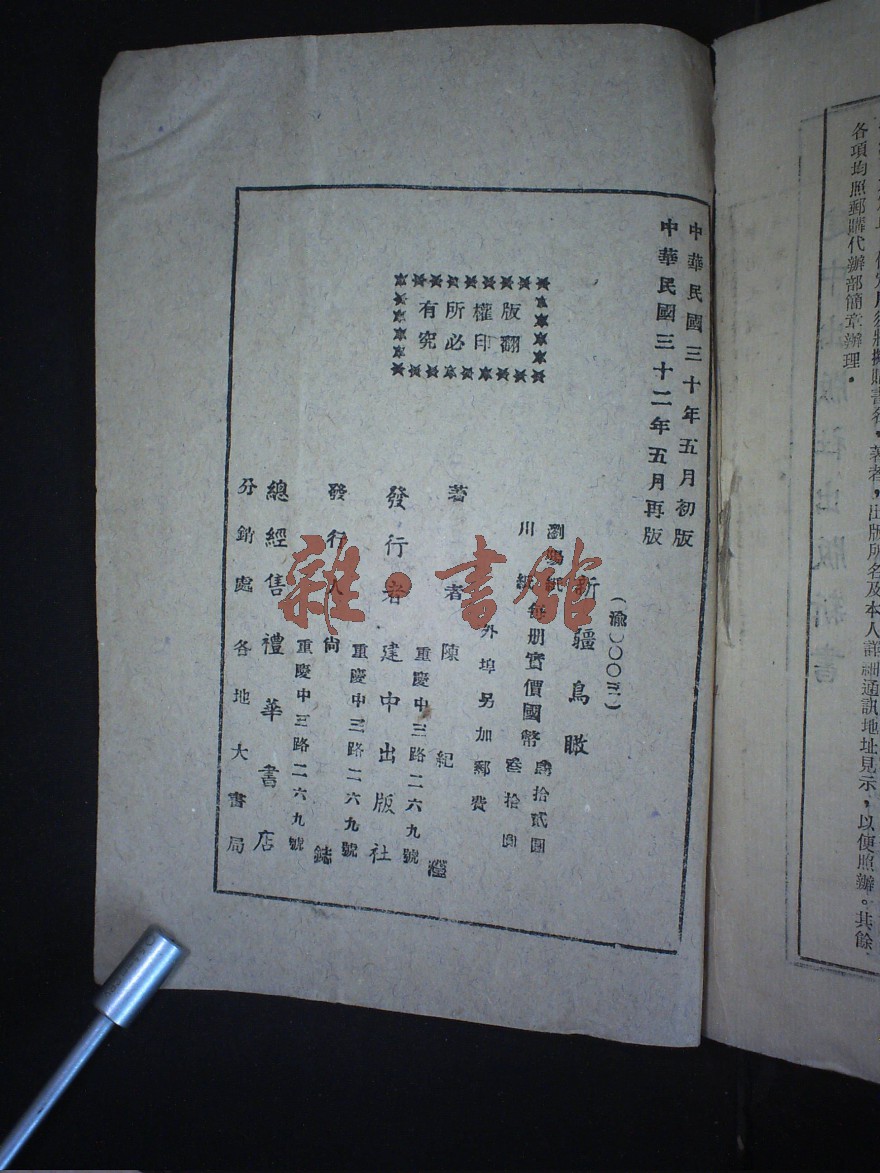 中華民國三十年五月初版
中華民國三十二年五月再版
版權所有
翻印必究
(渝〇〇〇三)
新疆鳥瞰
瀏陽紙
川紙
每册實價國幣
拾貳圓
叁拾圓
外埠另加郵費
著者 陳紀瀅
重慶中三路二六九號
發行者 建中出版社
重慶中三路二六九號
發行人 尚
重慶中三路二六九號
總經售 禮華書店
分銷處 各地大書局
雜·書館
各項均照郵購代辦部簡章辦理。
著者,出版所名及本人詳細通訊地址見示,以便照辦。其餘